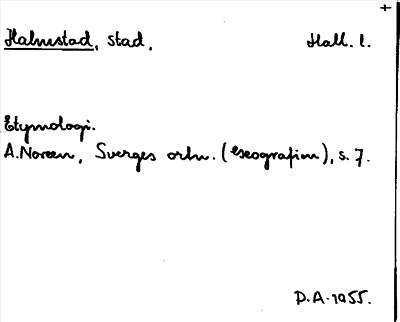 +
Halmstad, stad,    Hall. l.
Etymologi.
A. Noreen, Sverges ortn. (Geografien), s. 7.
D.A. 1955.